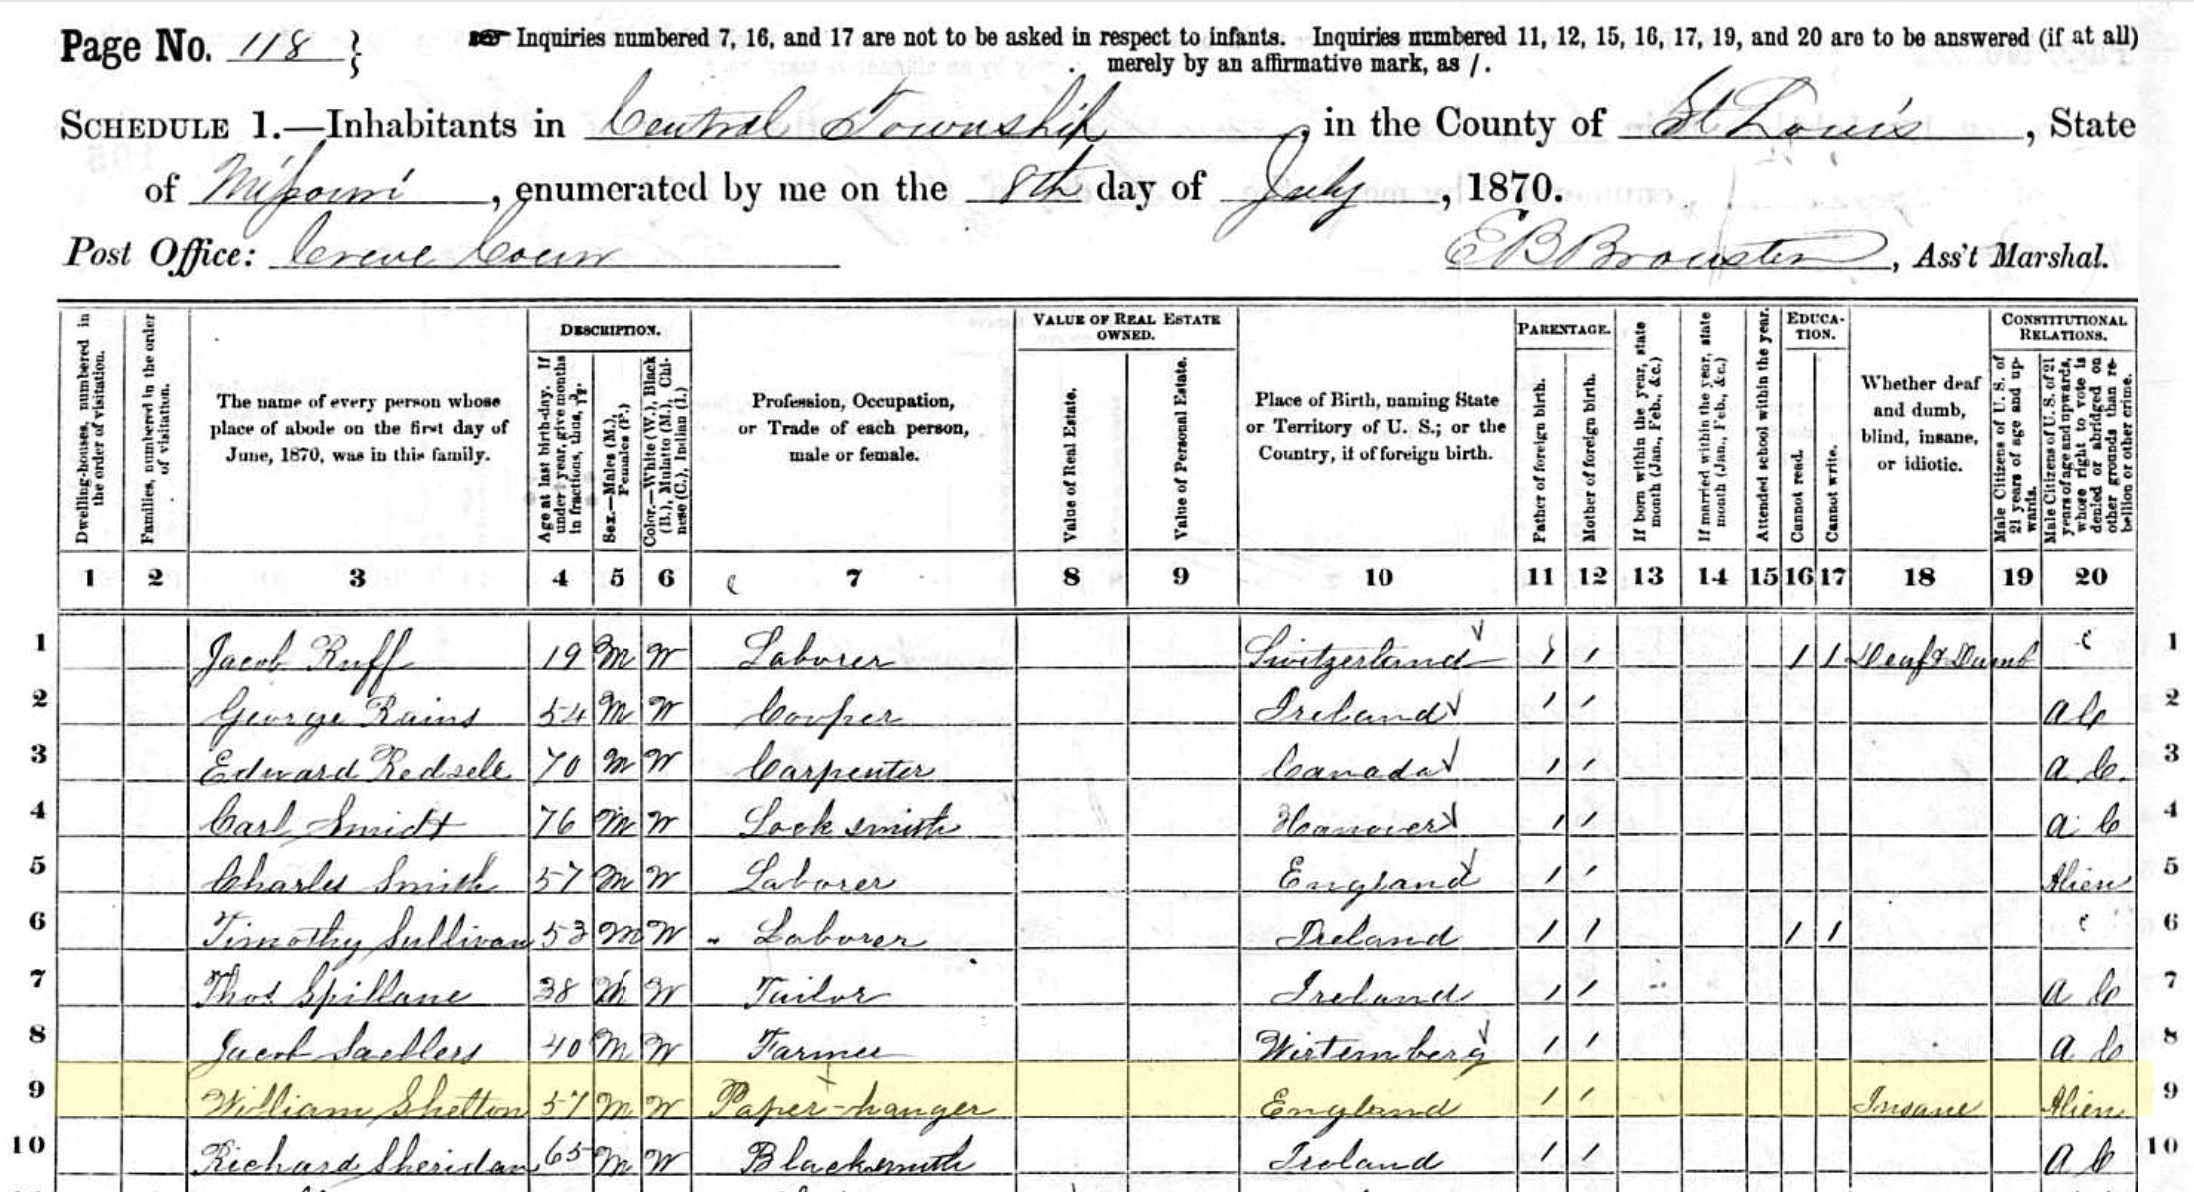 Page No. 118 } ☛ Inquiries numbered 7, 16, and 17 are not to be asked in respect to infants. Inquiries numbered 11, 12, 15, 16, 17, 19, and 20 are to be answered (if at all)
merely by an affirmative mark, as /.
SCHEDULE 1.—Inhabitants in Central Township, in the County of St Louis, State
of Missouri, enumerated by me on the 8th day of July, 1870.
Post Office: Creve Coeur E B Brouster, Ass't Marshal.
DESCRIPTION. VALUE OF REAL ESTATE OWNED. PARENTAGE. EDUCATION. CONSTITUTIONAL RELATIONS.
Dwelling-houses, numbered in the order of visitation.
Families, numbered in the order of visitation.
The name of every person whose place of abode on the first day of June, 1870, was in this family.
Age at last birth-day. If under 1 year, give months in fractions, thus, 3/12.
Sex.—Males (M.), Females (F.)
Color.—White (W.), Black (B.), Mulatto (M.), Chinese (C.), Indian (I.)
Profession, Occupation, or Trade of each person, male or female.
Value of Real Estate.
Value of Personal Estate.
Place of Birth, naming State or Territory of U. S.; or the Country, if of foreign birth.
Father of foreign birth.
Mother of foreign birth.
If born within the year, state month (Jan., Feb., &c.)
If married within the year, state month (Jan., Feb., &c.)
Attended school within the year.
Cannot read.
Cannot write.
Whether deaf and dumb, blind, insane, or idiotic.
Male Citizens of U. S. of 21 years of age and upwards.
Male Citizens of U. S. of 21 years of age and upwards, whose right to vote is denied or abridged on other grounds than rebellion or other crime.
1 2 3 4 5 6 7 8 9 10 11 12 13 14 15 16 17 18 19 20
1 Jacob Ruff 19 M W Laborer Switzerland / / / / Deaf & Dumb 1
2 George Rains 54 M W Cooper Ireland / / A C 2
3 Edward Redsell 70 M W Carpenter Canada / / A C. 3
4 Carl Smidt 76 M W Lock smith Hanover / / A C 4
5 Charles Smith 57 M W Laborer England / / Alien 5
6 Timothy Sullivan 53 M W Laborer Ireland / / / / 6
7 Thos Spillane 38 M W Tailor Ireland / / A C 7
8 Jacob 40 M W Farmer Wirtemberg / / A C 8
9 William Shelton 57 M W Paper-hanger England / / Insane Alien 9
10 Richard Sheridan 65 M W Blacksmith Ireland / / A C 10